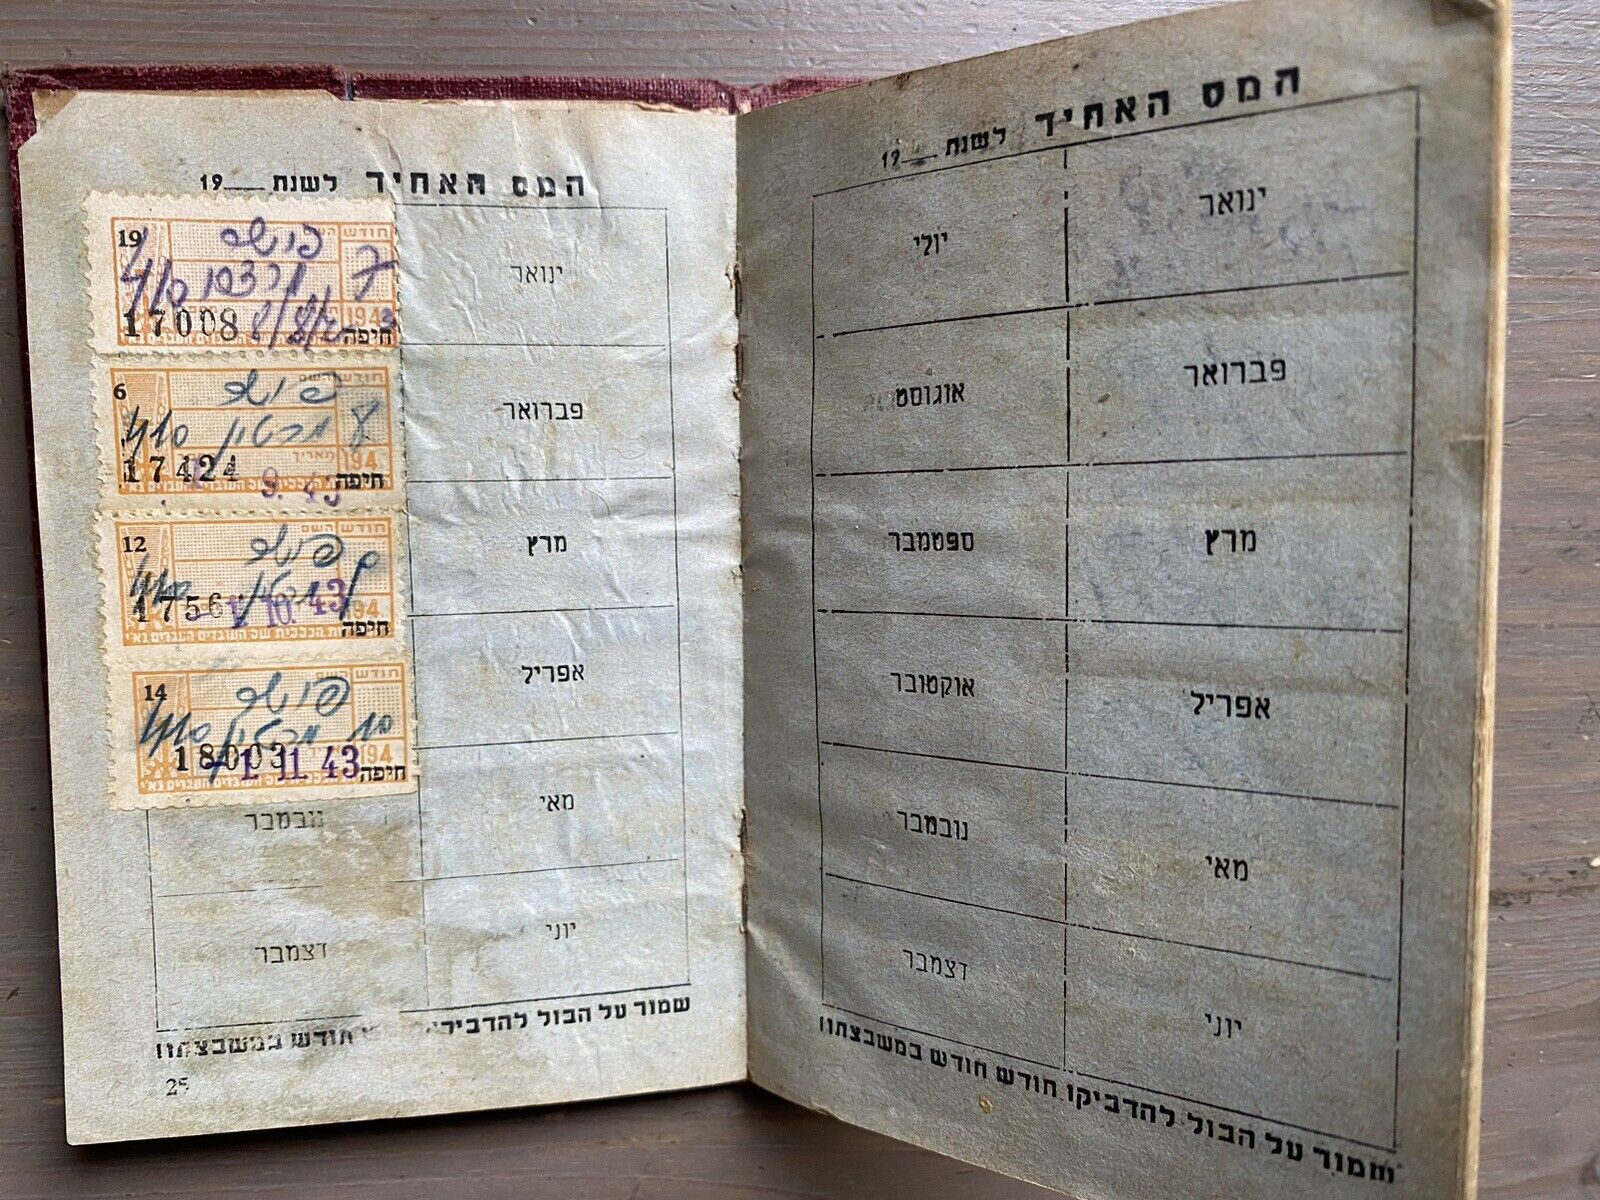 המס האחיד לשנת ___19
ינואר
פברואר
מרץ
אפריל
מאי
יוני
חודש
19
7
17008
1943
חיפה
חודש השם
6
8
17424
תאריך
194
9. 43
חיפה
חודש השם
12
1756
1. 10. 43
194
חיפה
הכללית של העובדים העברים בא"י
חודש
14
10
18003
-1. 11 43
194
חיפה
הכללית של העובדים העברים בא"י
נובמבר
דצמבר
שמור על הבול להדביקו חודש במשבצתו!
25
המס האחיד לשנת ___19
ינואר יולי
פברואר אוגוסט
מרץ ספטמבר
אפריל אוקטובר
מאי נובמבר
יוני דצמבר
שמור על הבול להדביקו חודש חודש במשבצתו!